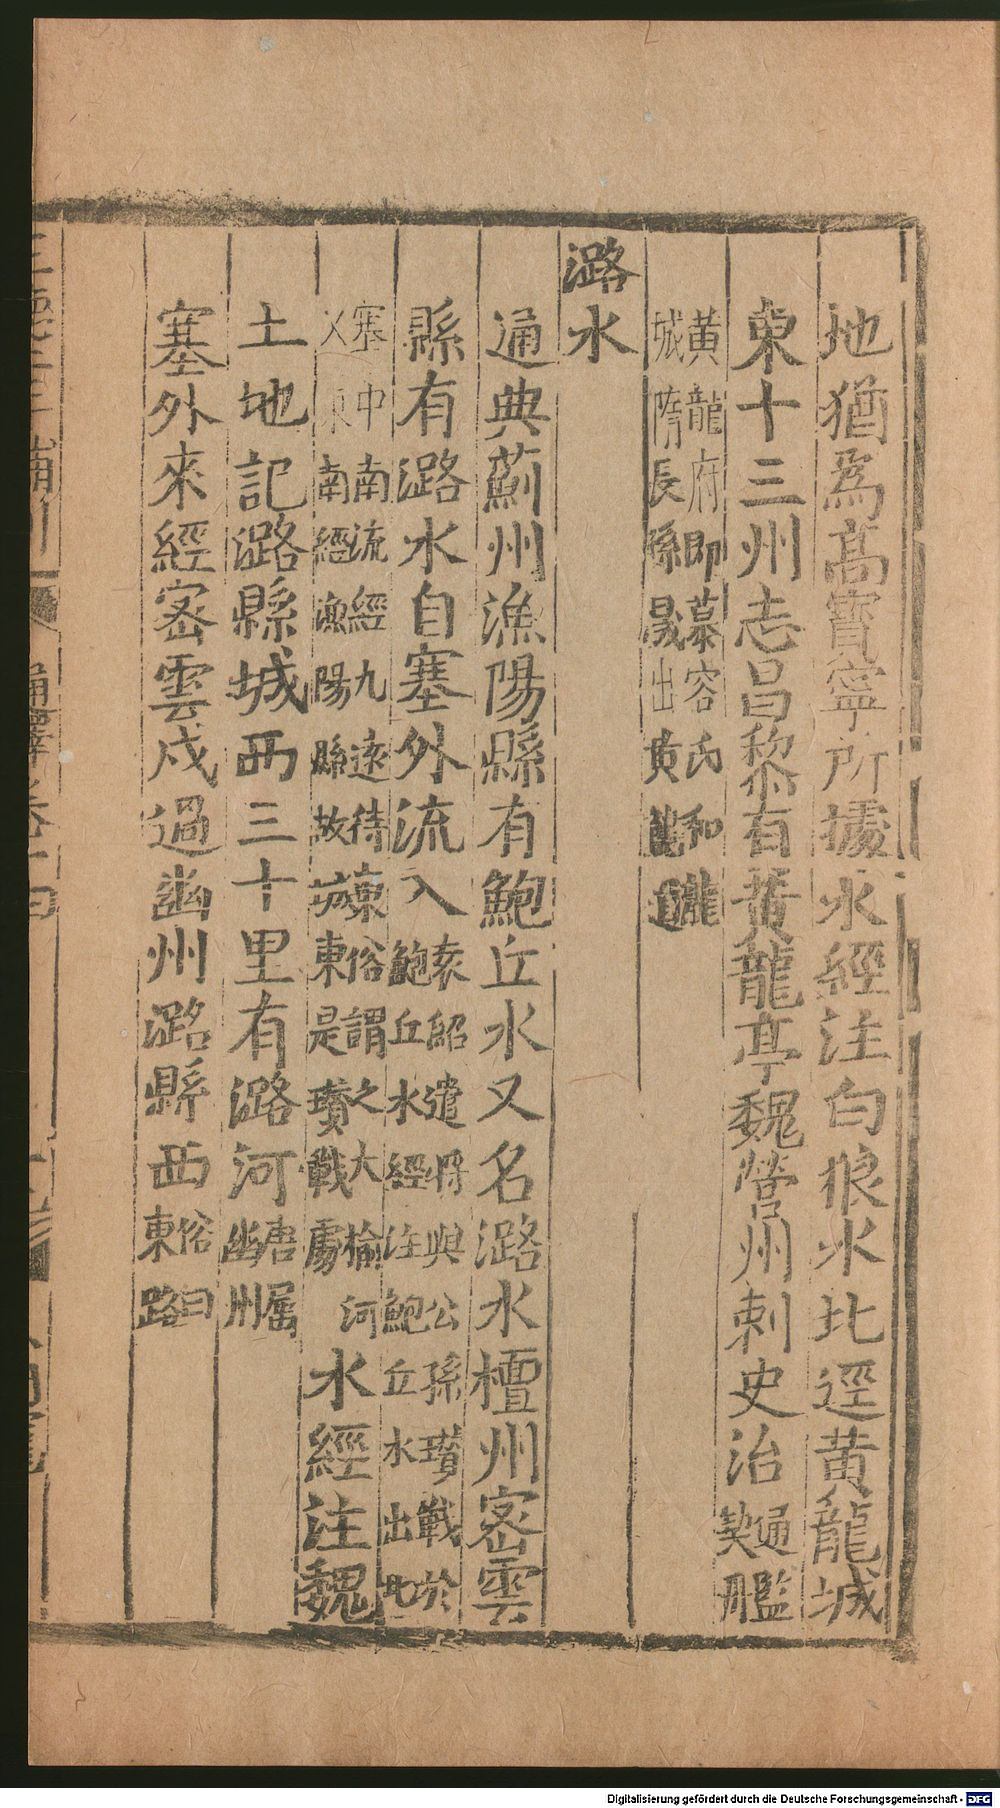 地猶為高寳寧所據水經注白狼水北逕黄龍城
東十三州志昌黎有黃龍亭魏營州刺史治通鑑契丹
黃龍府即慕容氏和龍
城隋長孫晟出黃龍道
潞水
通典薊州漁陽縣有鮑丘水又名潞水檀州密雲
縣有潞水自塞外流入袁紹遣將與公孫瓚戰於
鮑丘水經注鮑丘水出北
塞中南流經九遠待東俗謂之大榆河
又東南經漁陽縣故城東是瓚戰處水經注魏
土地記潞縣城西三十里有潞河唐属
幽州
塞外來經密雲戍過幽州潞縣西俗曰
東路
Digitalisierung gefördert durch die Deutsche Forschungsgemeinschaft - DFG